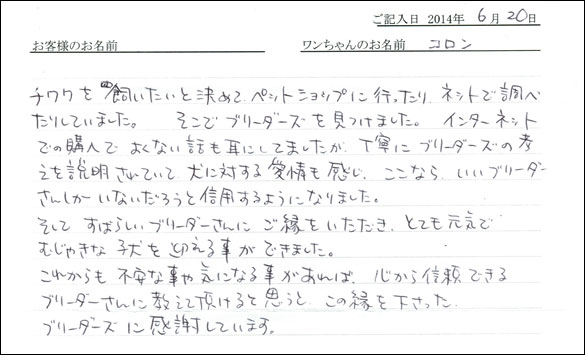 ご記入日 2014年 6月20日
お客様のお名前 ワンちゃんのお名前 コロン
チワワを 飼いたいと決めて ペットショップに行ったり ネットで調べ
たりしていました。 そこでブリーダーズを見つけました。 インターネット
での購入で よくない話も耳にしてましたが、丁寧にブリーダーズの考
えを説明されていて 犬に対する愛情も感じ、ここなら、いいブリーダー
さんしかいないだろうと信用するようになりました。
そして すばらしいブリーダーさんに ご縁をいただき、とても元気で
むじゃきな子犬を 迎える事ができました。
これからも 不安な事や気になる事があれば、心から信頼できる
ブリーダーさんに教えて頂けると思うと、この縁を下さった
ブリーダーズに感謝しています。